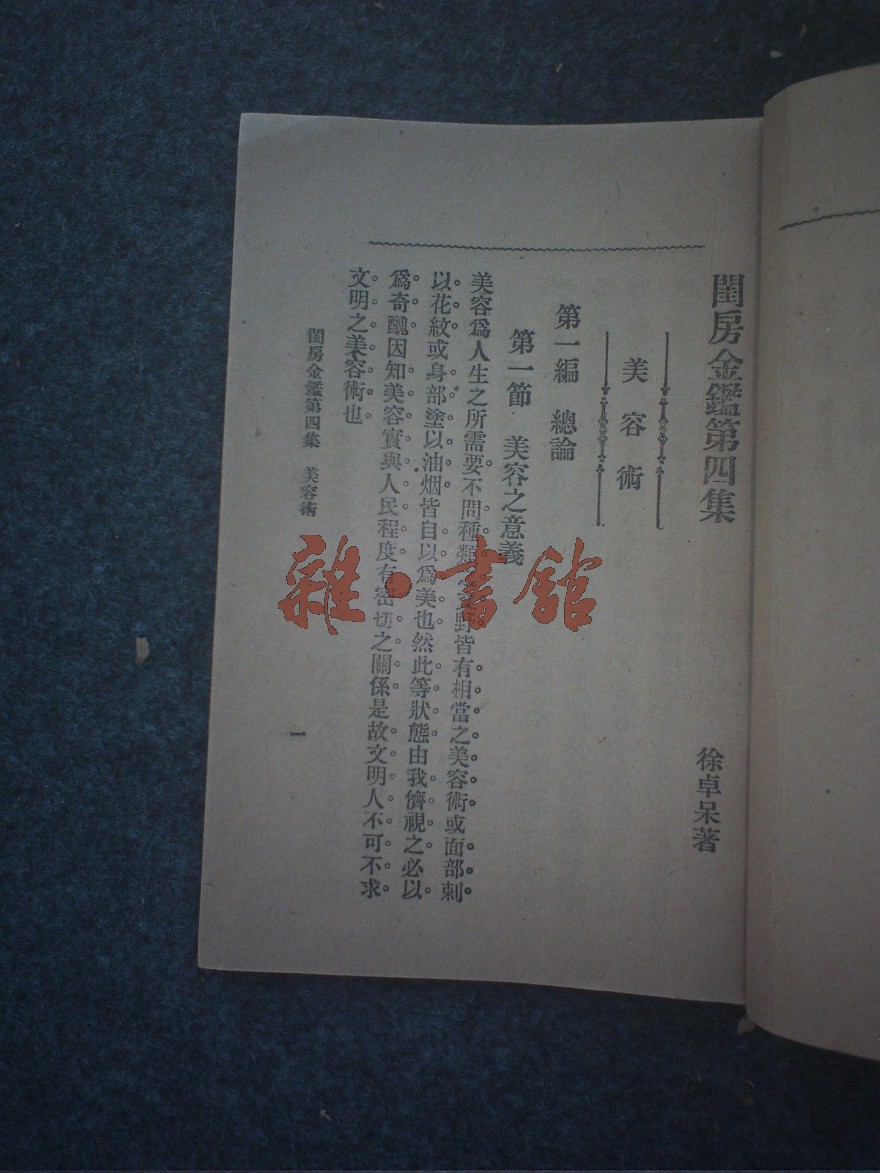 閨房金鑑第四集
徐卓呆著
美容術
第一編 總論
第一節 美容之意義
美容爲人生之所需要不問種類文野皆有相當之美容術或面部刺
以花紋或身部塗以油烟皆自以爲美也然此等狀態由我儕視之必以
爲奇醜因知美容實與人民程度有密切之關係是故文明人不可不求
文明之美容術也
閨房金鑑第四集 美容術
一
雜·書館